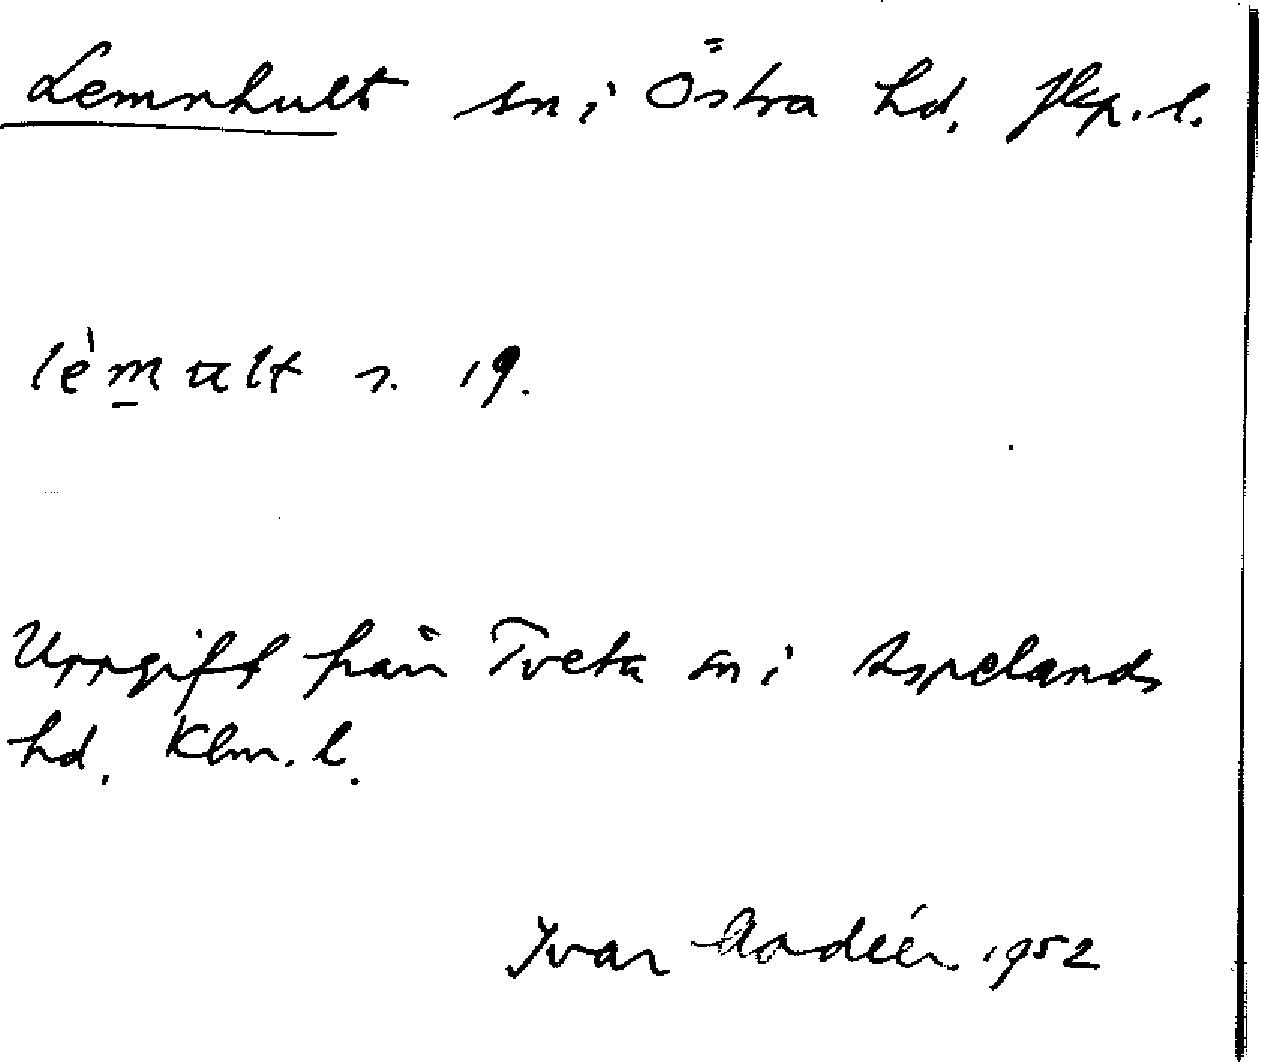 Lemnhult sn i Östra hd. Jkp. l.
lèm̲ult s. 19.
Uppgift från Tveta sn i Aspelands
hd. Klm. l.
Ivar Modéer 1952